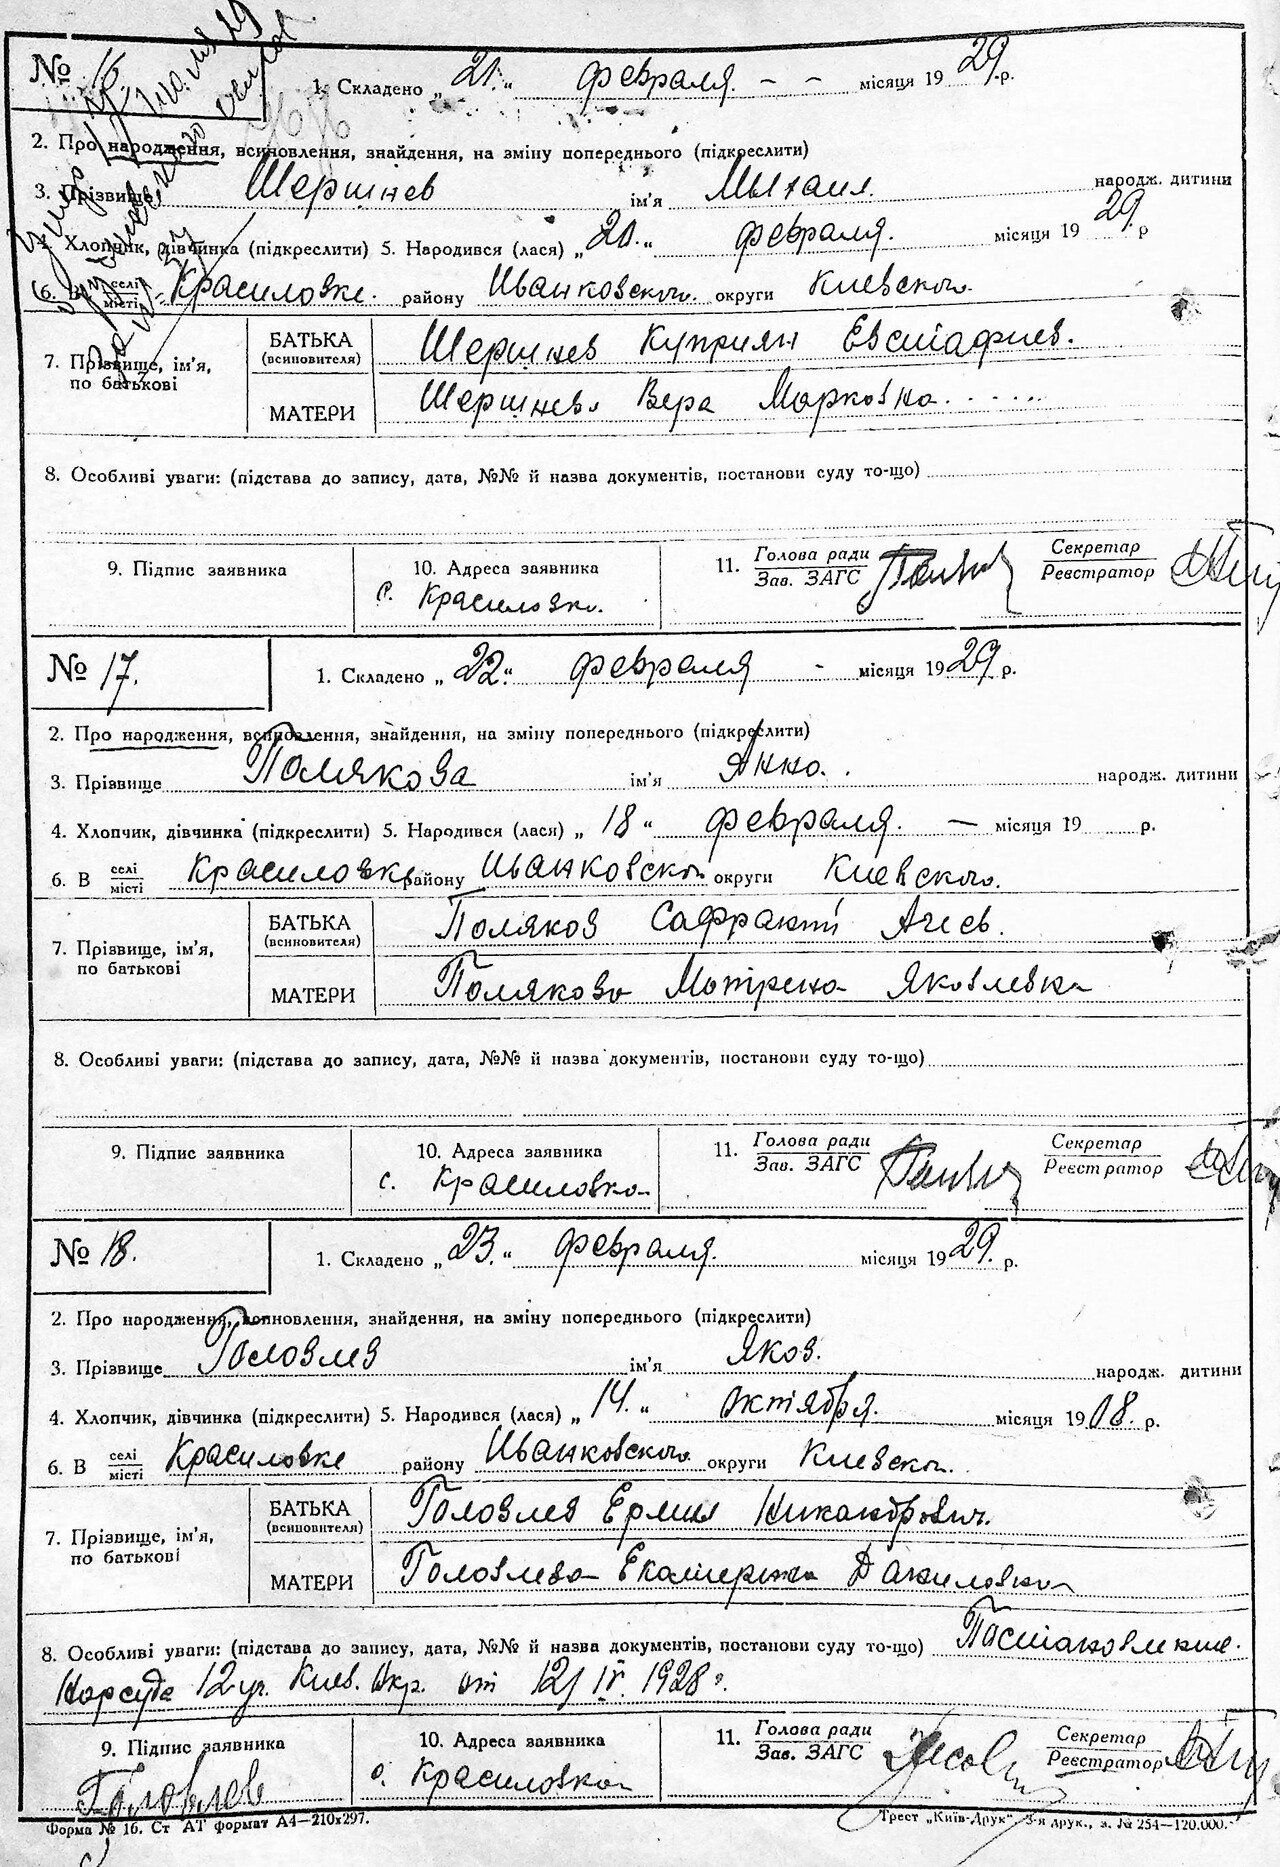 № 16.
1. Складено „ 21. “ февраля. – – місяця 19 29. р.
2. Про народження, всиновлення, знайдення, на зміну попереднього (підкреслити)
3. Прізвище Шершнев ім'я Михаил. народж. дитини
4. Хлопчик, дівчинка (підкреслити) 5. Народився (лася) „ 21. “ февраля. місяця 19 29. р
6. В селі місті Красиловке. району Иванковского. округи Киевского.
7. Прізвище, ім'я, по батькові
БАТЬКА (всиновителя) Шершнев Куприян Евстафиев.
МАТЕРИ Шершнева Вера Марковна. . . . . .
8. Особливі уваги: (підстава до запису, дата, №№ й назва документів, постанови суду то-що)
9. Підпис заявника
10. Адреса заявника
с. Красиловка.
11. Голова ради Зав. ЗАГС
Секретар Реєстратор
№ 17.
1. Складено „ 22. “ февраля – місяця 19 29. р.
2. Про народження, всиновлення, знайдення, на зміну попереднього (підкреслити)
3. Прізвище Полякова ім'я Анна. народж. дитини
4. Хлопчик, дівчинка (підкреслити) 5. Народився (лася) „ 18 “ февраля. – місяця 19 р.
6. В селі місті Красиловке району Иванковского округи Киевского.
7. Прізвище, ім'я, по батькові
БАТЬКА (всиновителя) Поляков
МАТЕРИ Полякова Матрена Яковлевна
8. Особливі уваги: (підстава до запису, дата, №№ й назва документів, постанови суду то-що)
9. Підпис заявника
10. Адреса заявника
с. Красиловка
11. Голова ради Зав. ЗАГС
Секретар Реєстратор
№ 18.
1. Складено „ 23. “ февраля. місяця 19 29. р.
2. Про народження, всиновлення, знайдення, на зміну попереднього (підкреслити)
3. Прізвище Головлев ім'я Яков. народж. дитини
4. Хлопчик, дівчинка (підкреслити) 5. Народився (лася) „ 14. “ октября. місяця 19 08. р.
6. В селі місті Красиловке району Иванковского округи Киевског.
7. Прізвище, ім'я, по батькові
БАТЬКА (всиновителя) Головлев Ермил Никандрович.
МАТЕРИ Головлева Екатерина Даниловна
8. Особливі уваги: (підстава до запису, дата, №№ й назва документів, постанови суду то-що) Постановление.
Нарсуда 12 уч. Киев. Окр. от 12/IV. 1928 г.
9. Підпис заявника
Головлев
10. Адреса заявника
с. Красиловка
11. Голова ради Зав. ЗАГС
Секретар Реєстратор
Форма № 16. Ст АТ формат А4—210х297.
Трест „Київ-Друк“, 3-я друк., з. № 254—120.000.